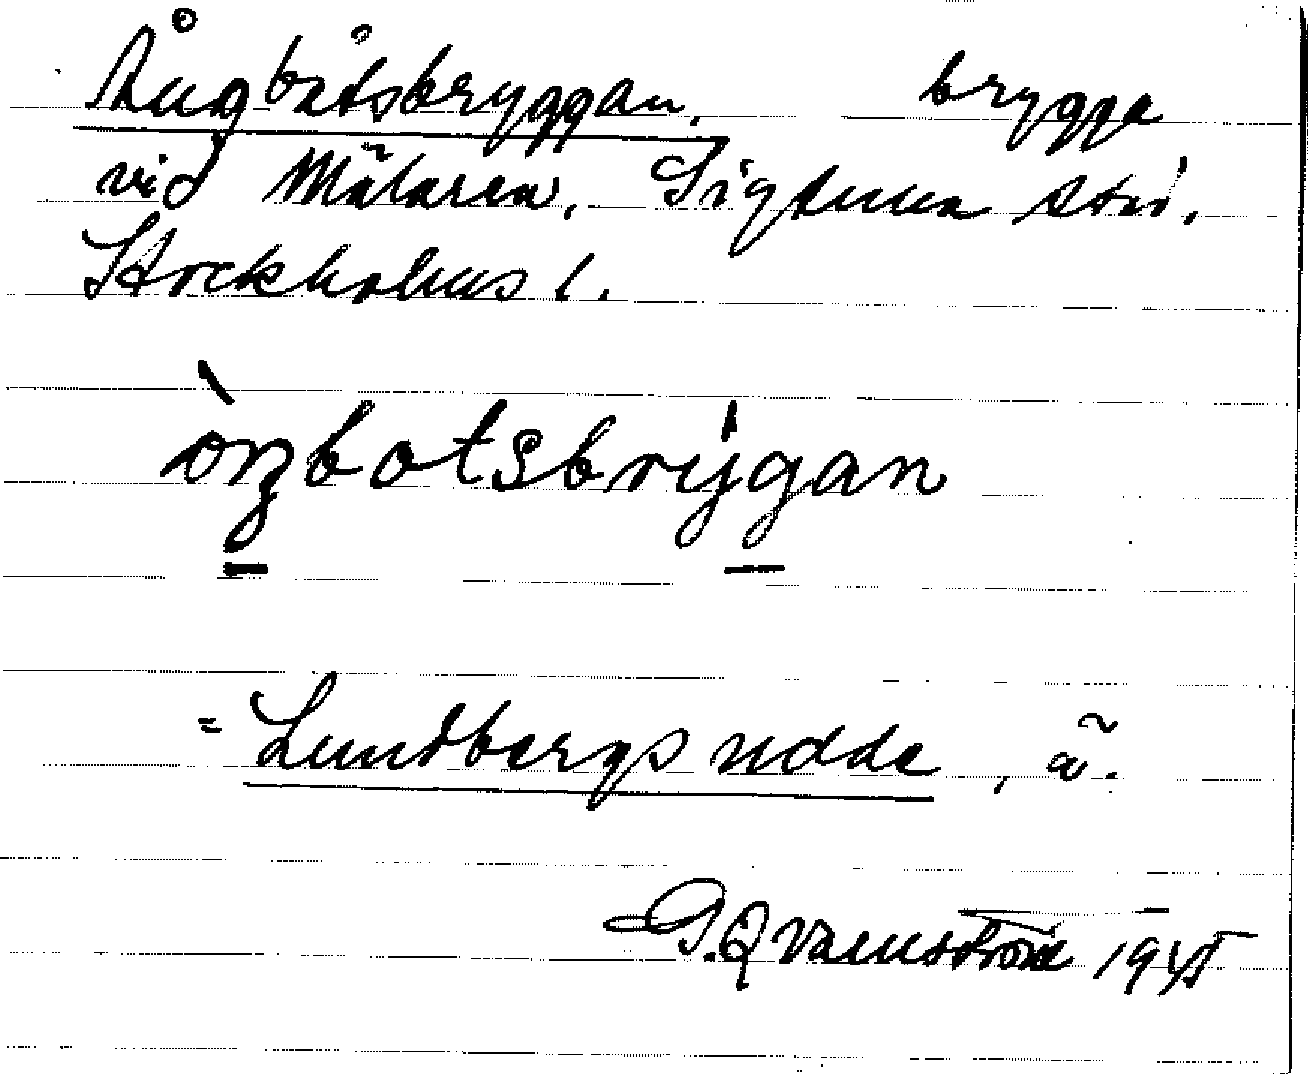 Ångbåtsbryggan, brygga
vid Mälaren, Sigtuna stad,
Stockholms l.
òŋbotsbrýgan
= Lundbergs udde, ä.
G. Qvarnström 1945